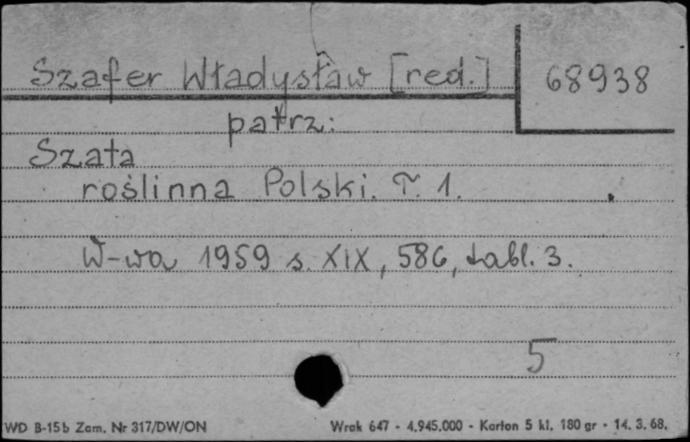 Szafer Władysław [red.] 68938
patrz:
Szata
roślinna Polski. T. 1.
W-wa 1959 s. XIX, 586, tabl. 3.
5
WD B-15b Zam. Nr 317/DW/ON Wrok 647 - 4.945.000 - Karton 5 kl. 180 gr - 14. 3. 68.